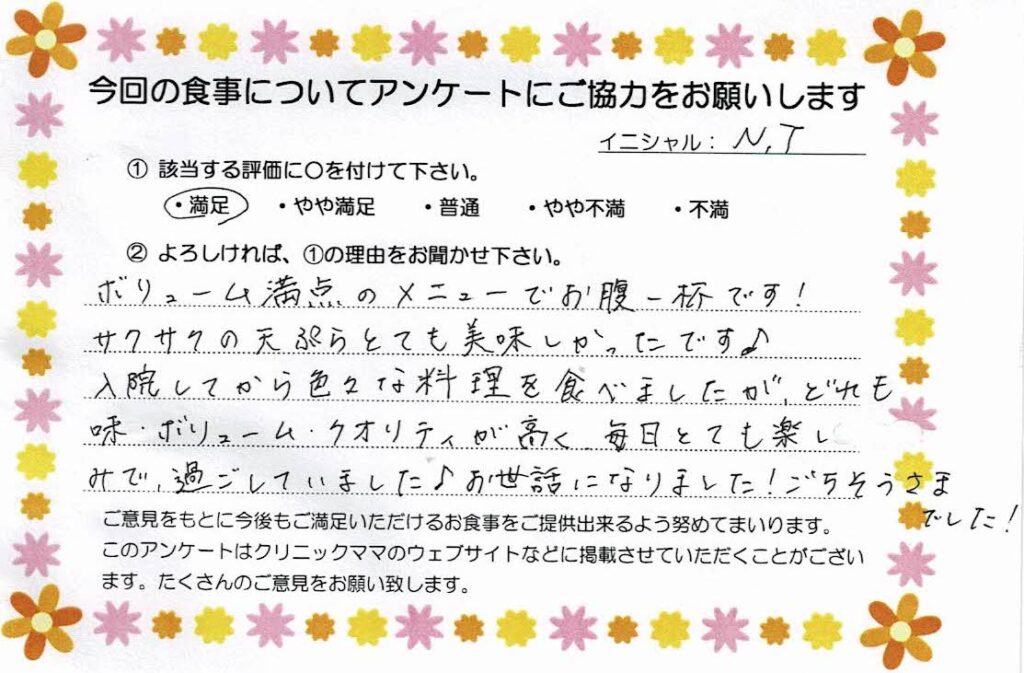 今回の食事についてアンケートにご協力をお願いします
イニシャル： N,T
① 該当する評価に○を付けて下さい。
・満足 ・やや満足 ・普通 ・やや不満 ・不満
② よろしければ、①の理由をお聞かせ下さい。
ボリューム満点のメニューでお腹一杯です！
サクサクの天ぷらとても美味しかったです♪
入院してから色々な料理を食べましたが、どれも
味・ボリューム・クオリティが高く、毎日とても楽し
みで、過ごしていました♪お世話になりました！ごちそうさま
でした！
ご意見をもとに今後もご満足いただけるお食事をご提供出来るよう努めてまいります。
このアンケートはクリニックママのウェブサイトなどに掲載させていただくことがござい
ます。たくさんのご意見をお願い致します。